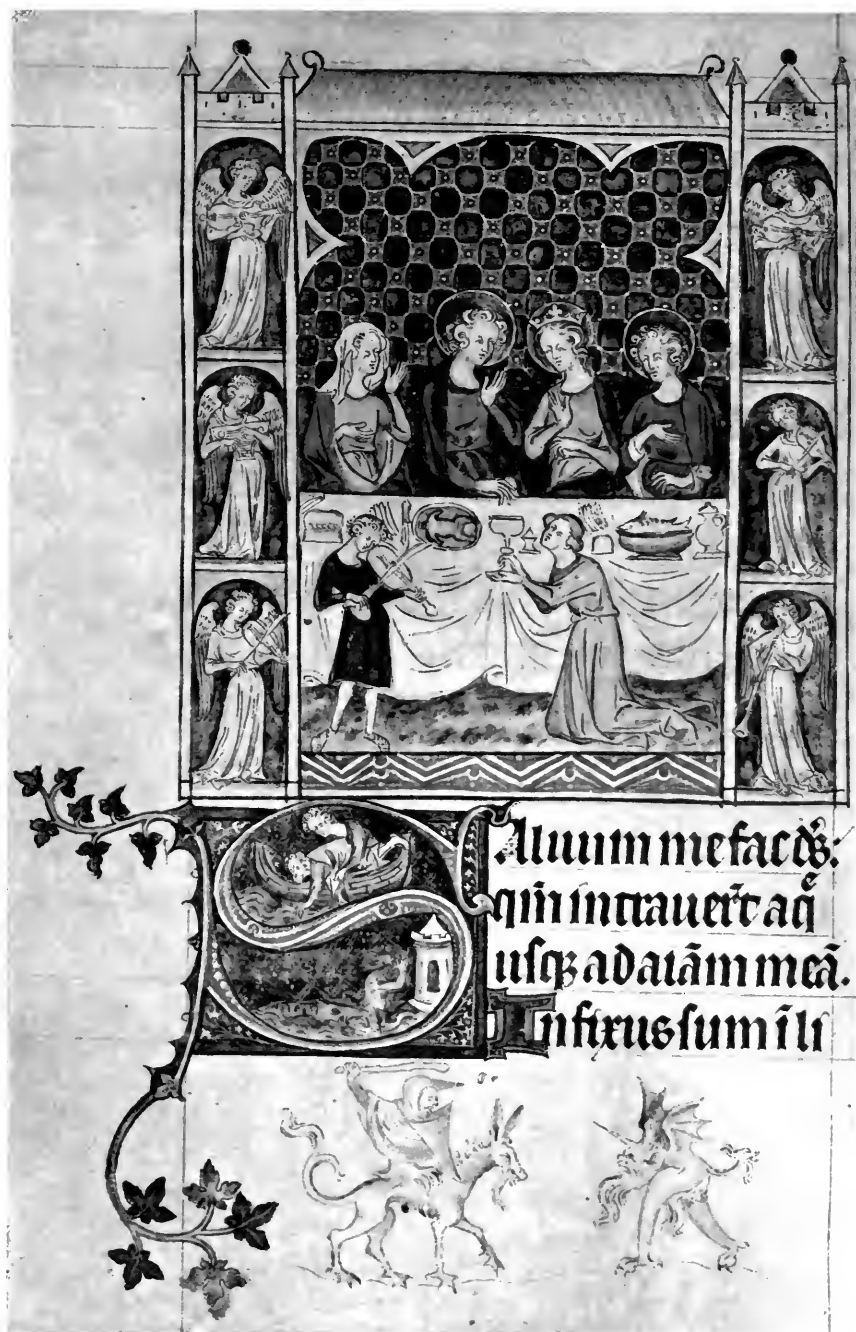 Aluum me fac ds̄:
qm̄ intrauer̄t aq̄
usq; ad aīam meā.
Infixus sum ī li